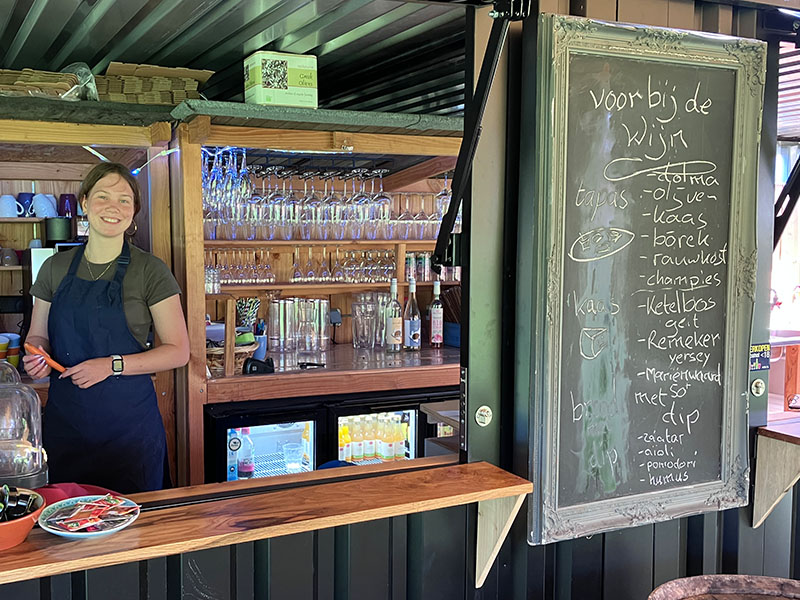 voor bij de
wijn
tapas
- dolma
- olijve-
- kaas
- börek
- rauwkost
- champies
kaas
- Ketelbos
geit
- Remeker
yersey
- Mariënwaard
met
dip
- za'atar
- aioli
- pomodori
- humus